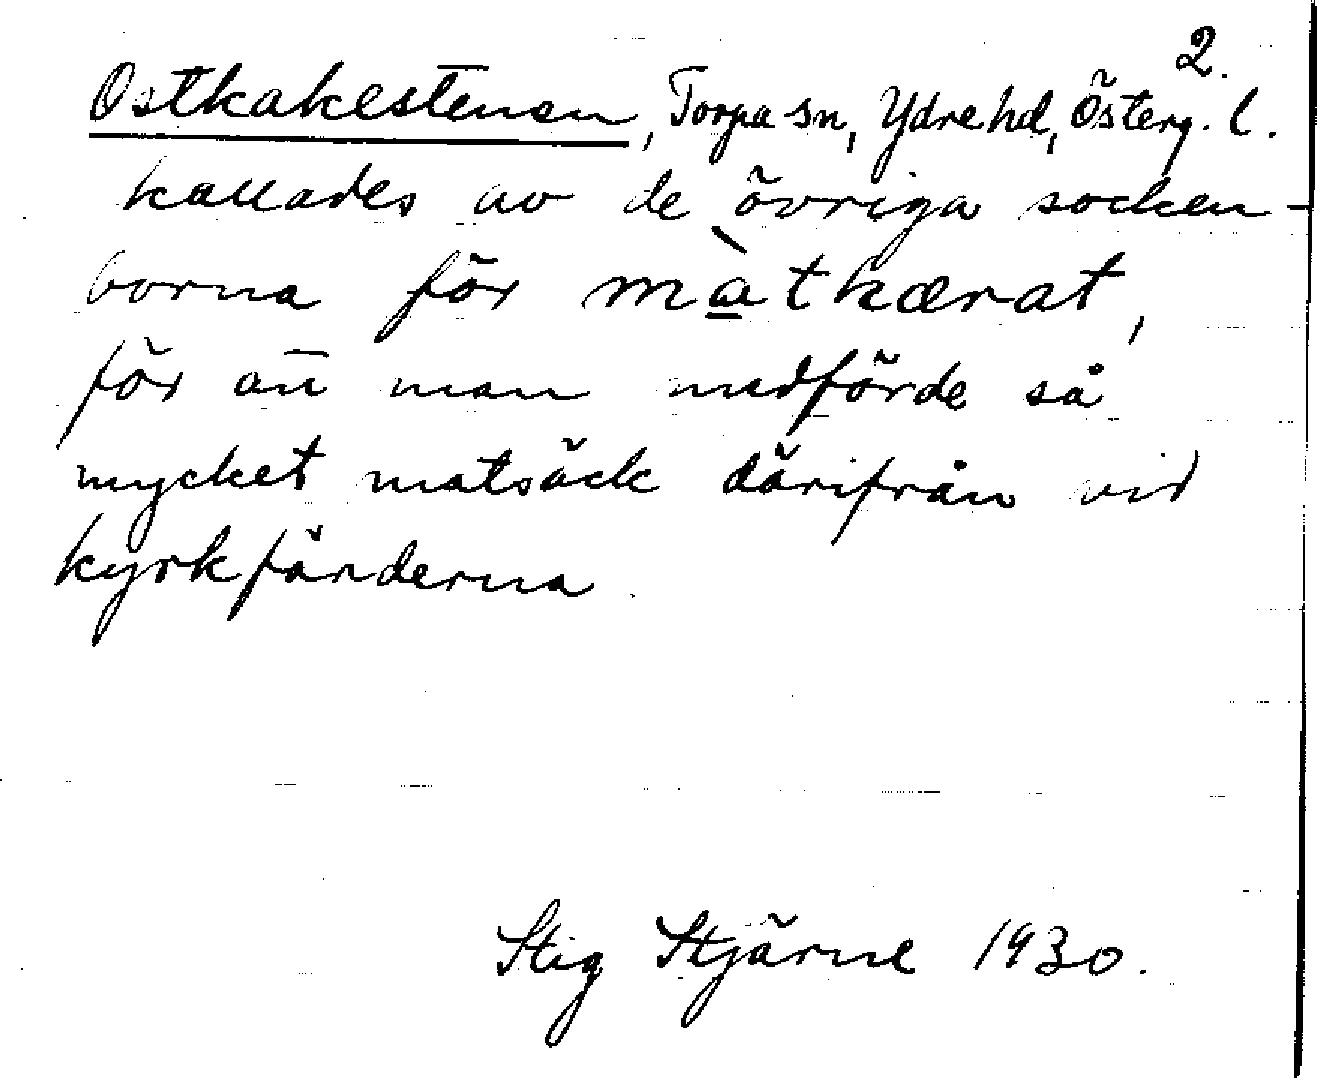 2.
Ostkakestenen, Torpa sn, Ydre hd, Österg. l.
kallades av de övriga socken-
borna för màtkærat,
för att man medförde så
mycket matsäck därifrån vid
kyrkfärderna.
Stig Stjärne 1930.